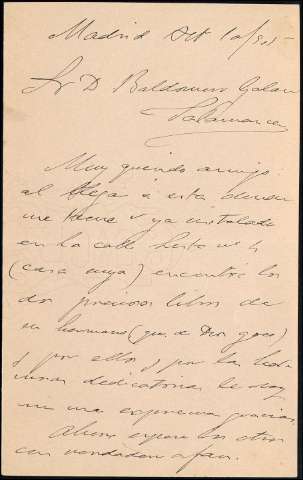 Madrid Oct 10/905
Sr D Baldomero Galan
Salamanca
Muy querido amigo
al llegar á esta donde
me tiene V ya instalado
en la calle
(casa suya) encontré los
dos preciosos libros de
su hermano (que de Dios goce)
y por ellos y por las
dedicatorias le doy
mis mas expresivas gracias.
Ahora espero los otros
con verdadero afan.